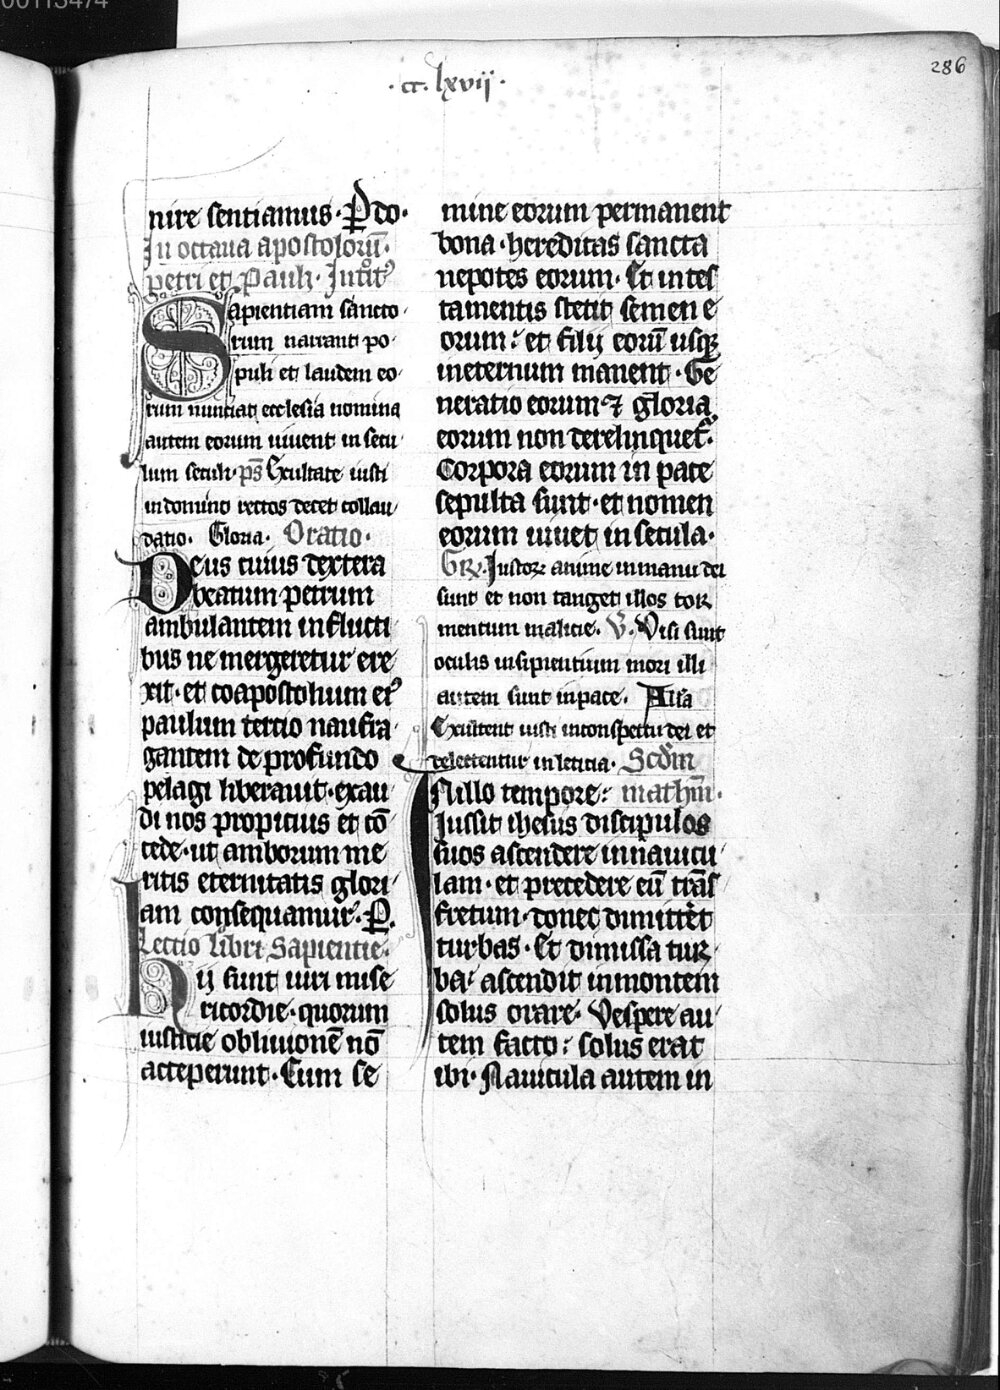 00113474
286
·cc·lxvij·
nire sentiamus· P̲ do·
In octaua apostoloru̅·
petri et Pauli· Introit9
Sapientiam sancto
rum narrant po·
puli et laudem eo
rum nunciat ecclesia nomina
autem eorum uiuent in secu
lum seculi· ps̅ Exultate iusti
in domino rectos decet collau
datio· Gloria· Oratio·
Deus cuius dextera
beatum petrum
ambulantem in flucti
bus ne mergeretur ere
xit· et coapostolum ei9
paulum tercio naufra
gantem de profundo
pelagi liberauit· exau
di nos propicius et co̅
cede· ut amborum me
ritis eternitatis glori
am consequamur· P̲·
Lectio libri Sapientie·
Hij sunt uiri mise
ricordie· quorum
iusticie obliuione̅ no̅
acceperunt· Cum se
mine eorum permanent
bona· hereditas sancta
nepotes eorum· Et in tes
tamentis stetit semen e
orum: et filij eoru̅ usqꝫ
ineternum manent· Ge
neratio eorum ⁊ gloria
eorum non derelinquet᷑·
Corpora eorum in pace
sepulta sunt· et nomen
eorum uiuet in secula·
Gr̅· Iustoꝝ anime in manu dei
sunt et non tanget illos tor
mentum malicie· V̅· Visi sunt
oculis insipientium mori illi
autem sunt in pace· All'a
Exultent iusti in conspectu dei et
delectentur in leticia· Scd̅m
In illo tempore: mathm̅·
Iussit ihesus discipulos
suos ascendere in nauicu
lam· et precedere eu̅ tra̅s
fretum· donec dimitteret
turbas· Et dimissa tur
ba· ascendit in montem
solus orare· Vespere au
tem facto: solus erat
ibi· Nauicula autem in